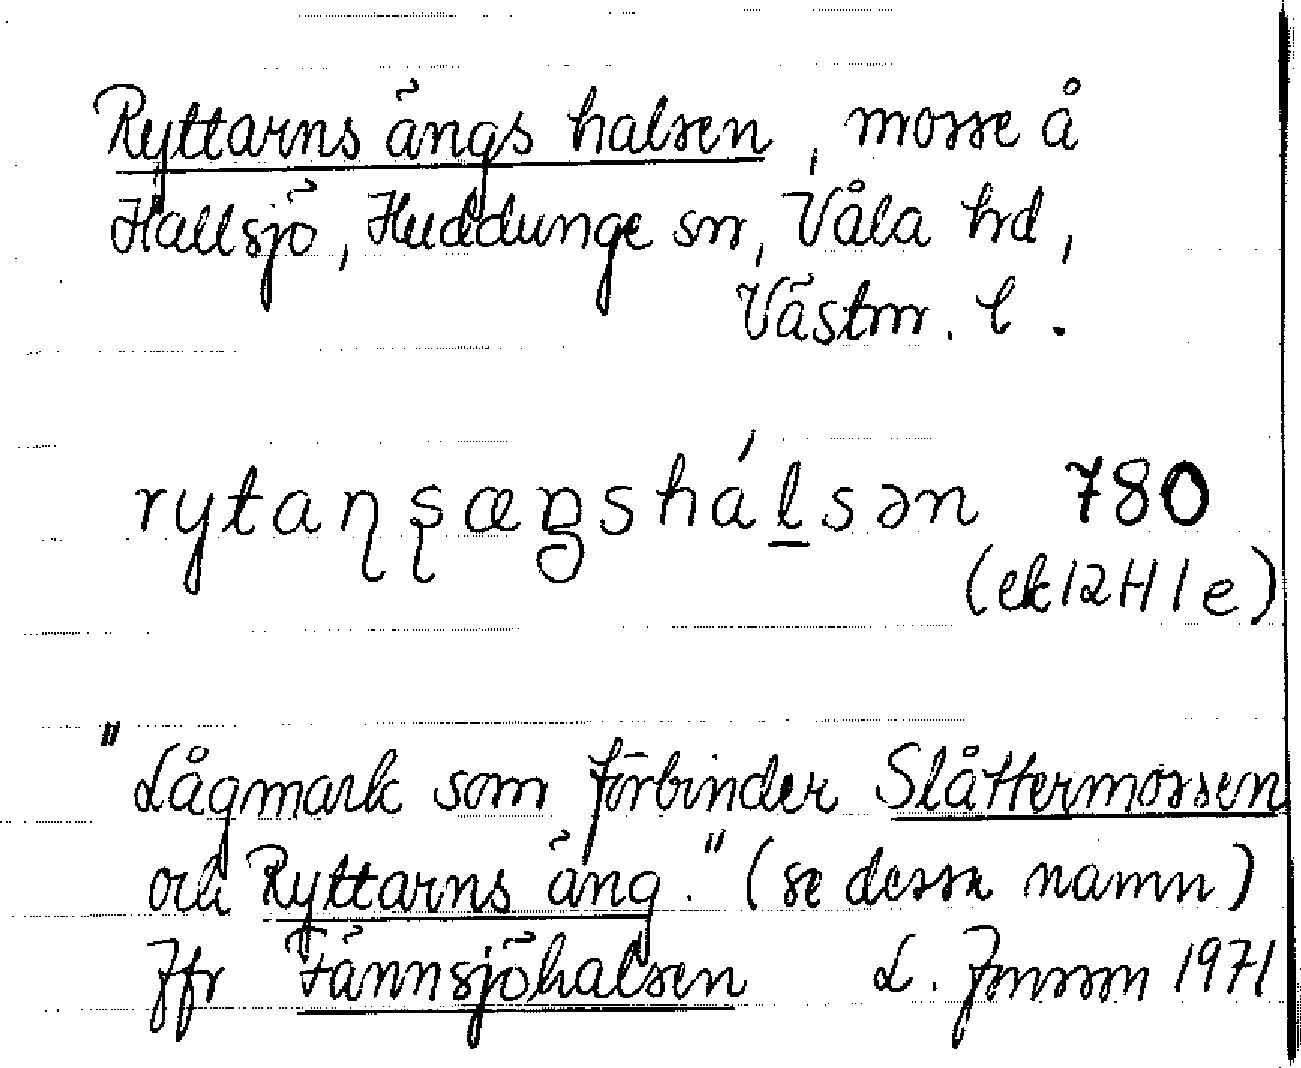 Ryttarns ängs halsen, mosse å
Hallsjö, Huddunge sn, Våla hd,
Västm. l.
rytaɳʂæŋshálsən 780
(ek 12H 1e)
"Lågmark som förbinder Slåttermossen
och Ryttarns äng." (se dessa namn)
Jfr Fännsjöhalsen L. Jonsson 1971